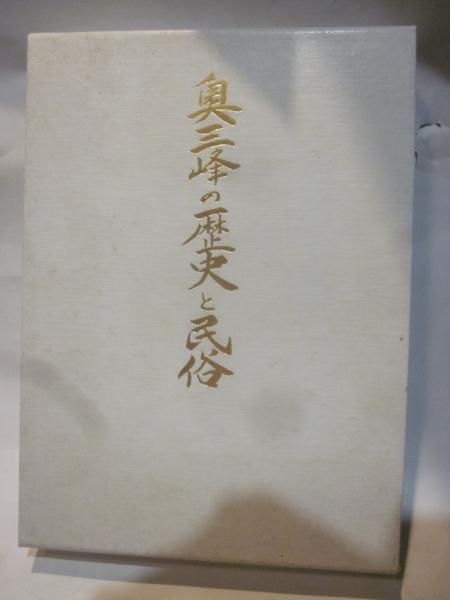 奥三峰の歴史と民俗